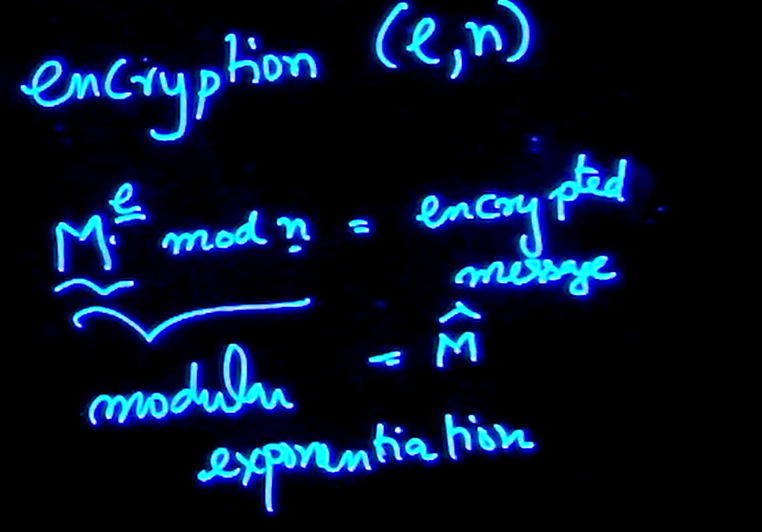 encryption (e,n)
M^e mod n = encrypted
message
= M̂
modular
exponentiation